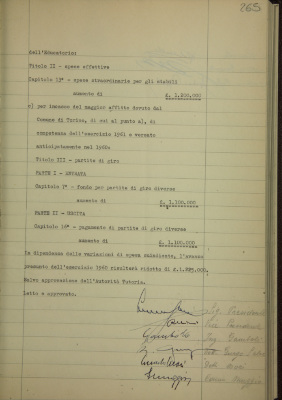 265
Dell'Educatorio:
Titolo II - spese effettive
Capitolo 13° - spese straordinarie per gli stabili
aumento di £. 1.800.000
c) per incasso del maggior affitto dovuto dal
Comune di Torino, di cui al punto a), di
competenza dell'esercizio 1961 e versato
anticipatamente nel 1960:
Titolo III - partite di giro
PARTE I - ENTRATA
Capitolo 1° - fondo per partite di giro diverse
aumento di £. 1.100.000
PARTE II - USCITA
Capitolo 16° - pagamento di partite di giro diverse
aumento di £. 1.100.000
In dipendenza delle variazioni di spesa suindicate, l'avanzo
presunto dell'esercizio 1960 risulterà ridotto di £.1.885.000.
Salvo approvazione dell'Autorità Tutoria.
Letto e approvato.
Presidente